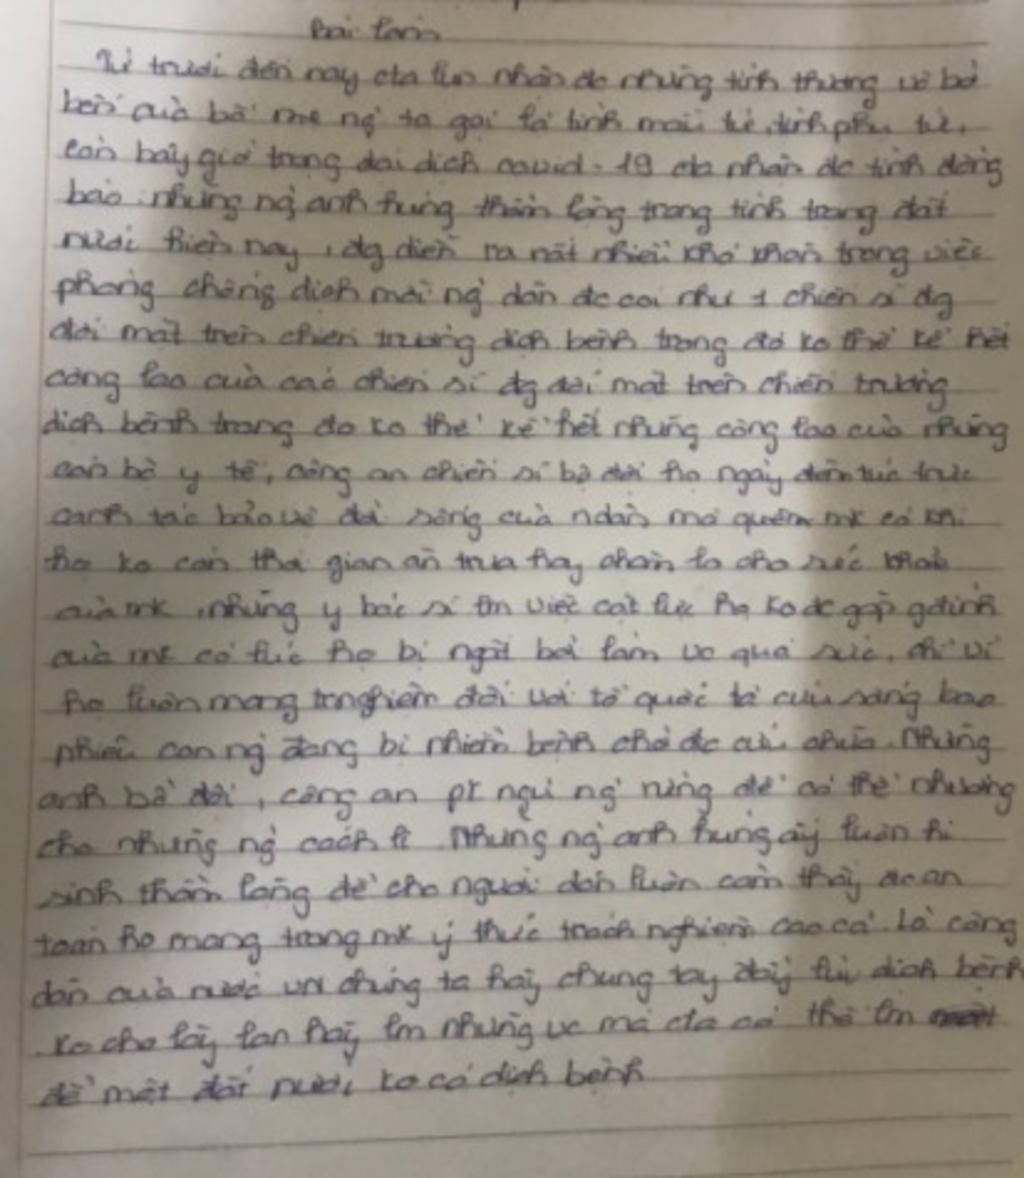 Bài làm
Từ trước đến nay cta luôn nhận đc những tình thương vô bờ
bến của bố mẹ ng` ta gọi là tình mẫu tử, tình phụ tử,
còn bây giờ trong đại dịch covid-19 cta nhận đc tình đồng
bào những ng` anh hùng thầm lặng trong tình trạng đất
nước hiện nay, đg diễn ra rất nhiều khó khăn trong việc
phòng chống dịch mỗi ng` dân đc coi như 1 chiến sĩ đg
đối mặt trên chiến trường dịch bệnh trong đó ko thể kể hết
công lao của các chiến sĩ đg đối mặt trên chiến trường
dịch bệnh trong đó ko thể kể hết những công lao của những
cán bộ y tế, công an chiến sĩ bộ đội họ ngày đêm túc trực
canh tác bảo vệ đời sống của ndân mà quên mk có khi
họ ko còn thời gian ăn trưa hay chăm lo cho sức khoẻ
của mk, những y bác sĩ lm việc cật lực họ ko đc gặp gđình
của mk có lúc họ bị ngất bởi làm vc quá sức, chỉ vì
họ luôn mang trnghiệm đối với tổ quốc là cứu sống bao
nhiêu con ng` đang bị nhiễm bệnh chờ đc cứu chữa. Những
anh bộ đội, công an pk ngủ ng` rừng để có thể nhường
cho những ng` cách li. Những ng` anh hùng ấy luôn hi
sinh thầm lặng để cho người dân luôn cảm thấy đc an
toàn họ mang trong mk ý thức trách nghiệm cao cả. Là công
dân của nước VN chúng ta hãy chung tay đẩy lùi dịch bệnh
ko cho lây lan hãy lm những vc mà cta có thể lm
để một đất nước ko có dịch bệnh